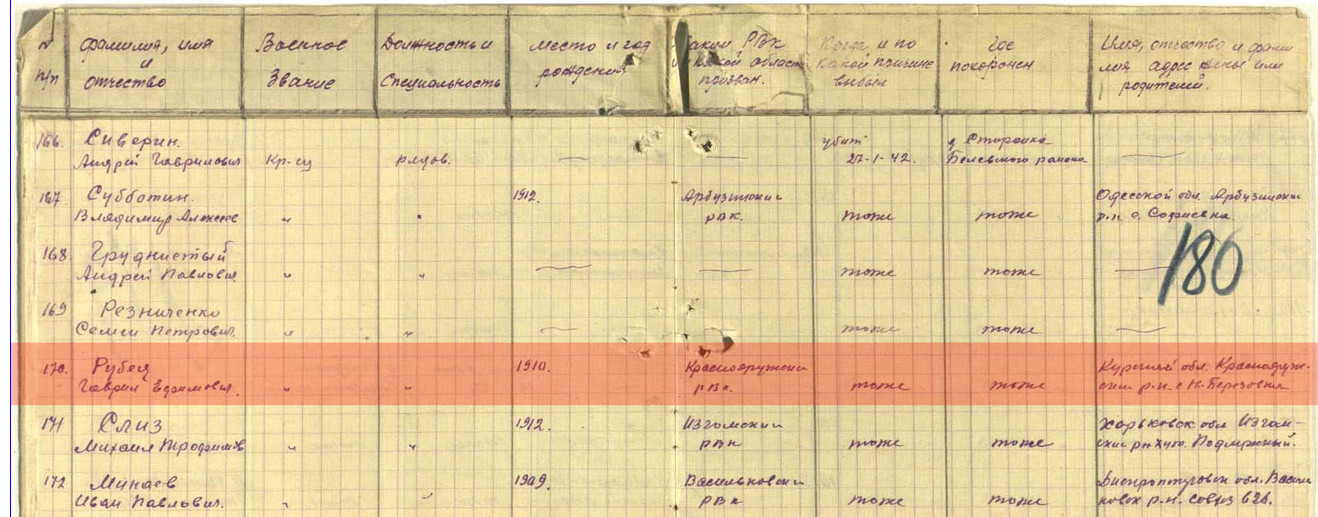 № п/п
фамилия, имя и отчество
Военное Звание
Должность и Специальность
место и год рождения
каким РВК и какой области призван.
Когда и по какой причине выбыл
где похоронен
Имя, отчество и фами
лия адрес жены или родителей.
166. Сиверин. Андрей Гаврилович Кр-ец рядов. — — убит 27-1-42. Белевского района —
167 Субботин. Владимир Алексеев " " 1912. Арбузинский рвк. тоже тоже Одесской обл. Арбузински р.н. с. Софиевка.
168. Груднистый Андрей Павлович " " — — тоже тоже —
180
169 Резниченко Семен Петрович. " " — — тоже тоже —
170. Рубец Гаврил Ефимович. " " 1910. Краснояружский рвк. тоже тоже Курской обл. Краснояруж-
ский р.н. с. Н. Березовка
171 Слиз Михаил Трофимов " " 1912. Изюмский рвк тоже тоже Харьковск обл Изюм-
ский рн хут.
172 Минаев Иван Павлович. " " 1909. Васильковский РВК тоже тоже обл. Васил
ковск р.н.